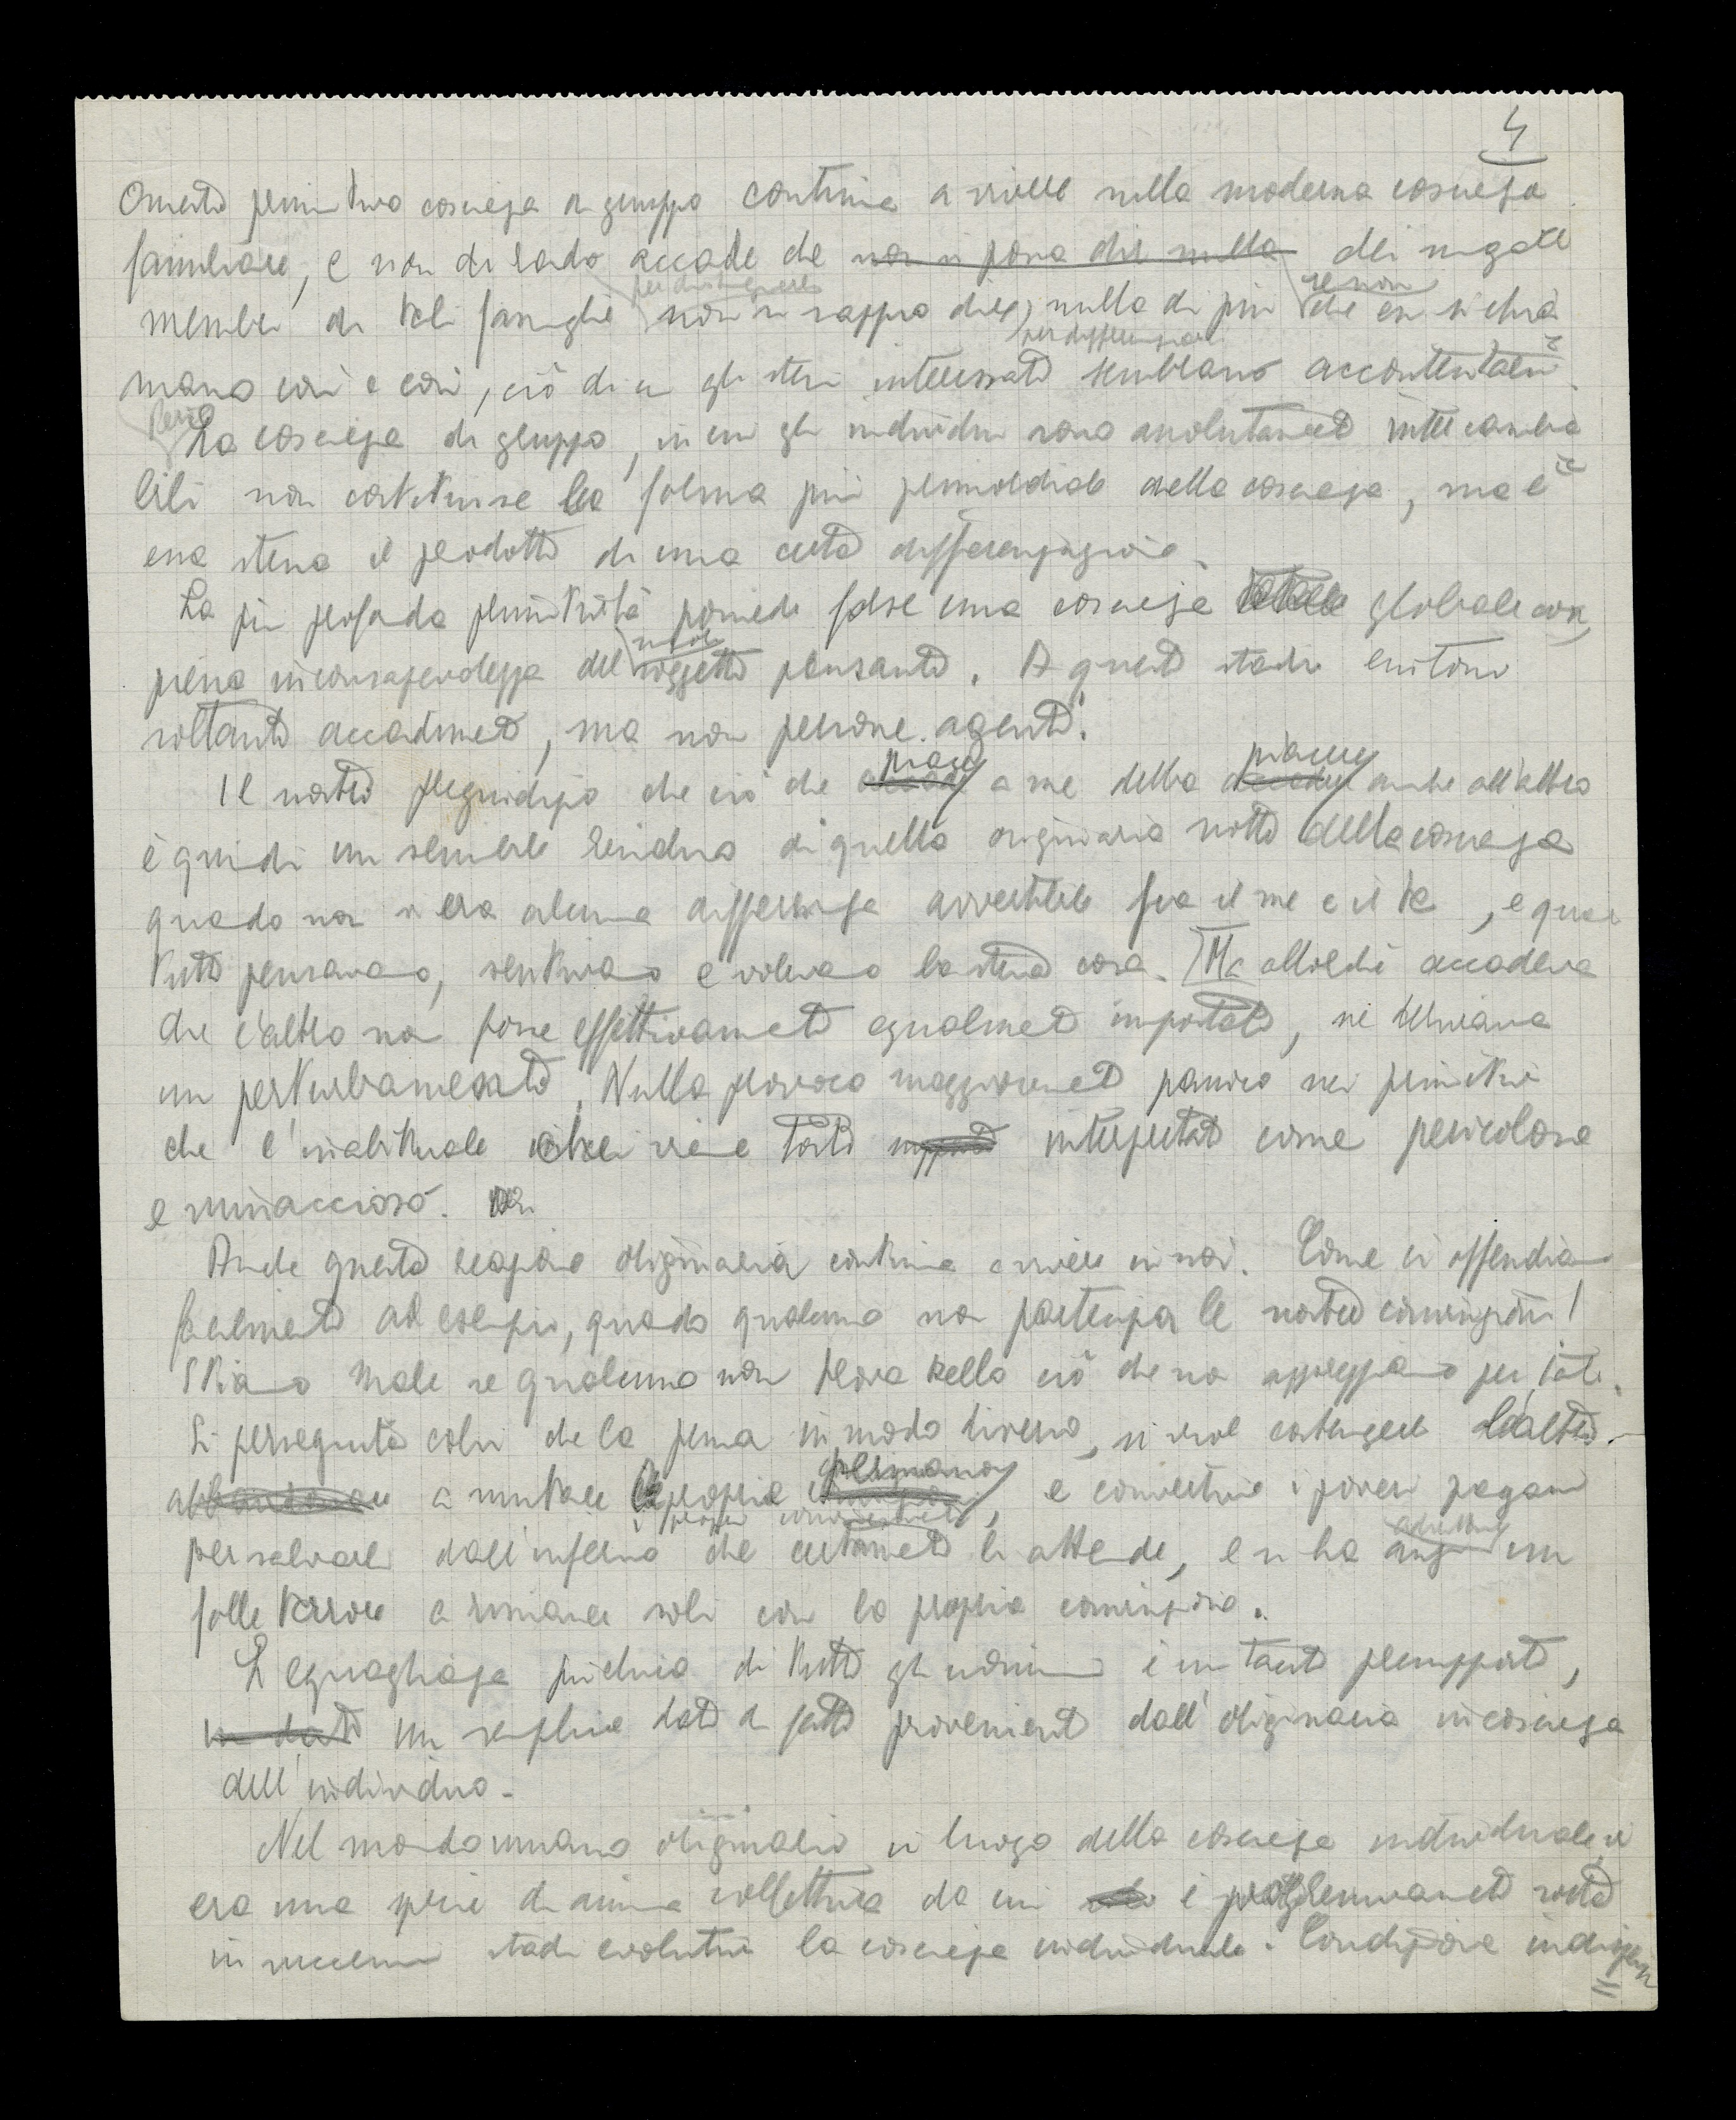 4
Questa primitiva coscienza di gruppo continua a vivere nella moderna coscienza
familiare, e non di rado accade che non si possa dire nulla dei singoli
membri di tali famiglie per distinguerli non si sappia dire, nulla di più se non che essi si chia
mano così e così, ciò di cui gli stessi interessati sembrano accontentarsi.
Però La coscienza di gruppo, in cui gli individui sono assolutamente intercambia
bili non costituisce la forma più primordiale della coscienza, ma è
essa stessa il prodotto di una certa differenziazione.
La più profonda primitività possiede forse una coscienza totale globale con
piena inconsapevolezza del soggetto pensante. A questo stadio esistono
soltanto accadimenti, ma non persone agenti.
Il nostro pregiudizio che ciò che accade piace a me debba piacere anche all'altro
è quindi un semplice residuo di quella originaria notte della coscienza
quando non vi era alcuna differenza avvertibile fra il me e il te, e quando
tutti pensavano, sentivano e volevano la stessa cosa. Ma allorchè accadeva
che l'altro non fosse effettivamente egualmente impostato, ne derivava
un perturbamento. Nulla provoca maggiormente panico nei primitivi
che l'inabituale che viene tosto interpretato come pericoloso
e minaccioso.
Anche questa reazione originaria continua a vivere in noi. Come ci offendiamo
facilmente ad esempio, quando qualcuno non partecipa le nostre convinzioni!
Stiamo male se qualcuno non trova bello ciò che noi apprezziamo per tale.
Si perseguita colui che la pensa in modo diverso, si vuol costringere l'altro
abbandonare a mutare le proprie, e convertire i poveri pagani
per salvarli dall'inferno che certamente li attende, e si ha un
folle terrore a rimanere soli con la propria convinzione.
L'eguaglianza psichica di tutti gli uomini è un tacito presupposto,
un semplice dato di fatto proveniente dall'originaria incoscienza
dell'individuo.
Nel mondo umano originario in luogo della coscienza individuale vi
era una specie di anima collettiva da cui è progressivamente sorta
in successivi stadi evolutivi la coscienza individuale. Condizione indispen